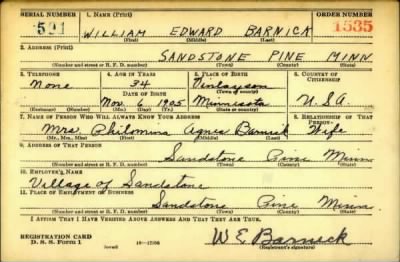 SERIAL NUMBER 1. NAME (Print) ORDER NUMBER
591 WILLIAM EDWARD BARNICK 1535
(First) (Middle) (Last)
2. ADDRESS (Print)
SANDSTONE PINE MINN
(Number and street or R. F. D. number) (Town) (County) (State)
3. TELEPHONE 4. AGE IN YEARS 5. PLACE OF BIRTH 6. COUNTRY OF CITIZENSHIP
None 34 Finlayson
DATE OF BIRTH (Town or county)
Nov. 6, 1905 Minnesota U.S.A.
(Exchange) (Number) (Mo.) (Day) (Yr.) (State or country)
7. NAME OF PERSON WHO WILL ALWAYS KNOW YOUR ADDRESS 8. RELATIONSHIP OF THAT PERSON
Mrs. Philomina Agnes Barnick Wife
(Mr., Mrs., Miss) (First) (Middle) (Last)
9. ADDRESS OF THAT PERSON
Sandstone Pine Minn
(Number and street or R. F. D. number) (Town) (County) (State)
10. EMPLOYER'S NAME
Village of Sandstone
11. PLACE OF EMPLOYMENT OR BUSINESS
Sandstone Pine Minn
(Number and street or R. F. D. number) (Town) (County) (State)
I AFFIRM THAT I HAVE VERIFIED ABOVE ANSWERS AND THAT THEY ARE TRUE.
REGISTRATION CARD
D. S. S. FORM 1 W E Barnick
(Registrant's signature)